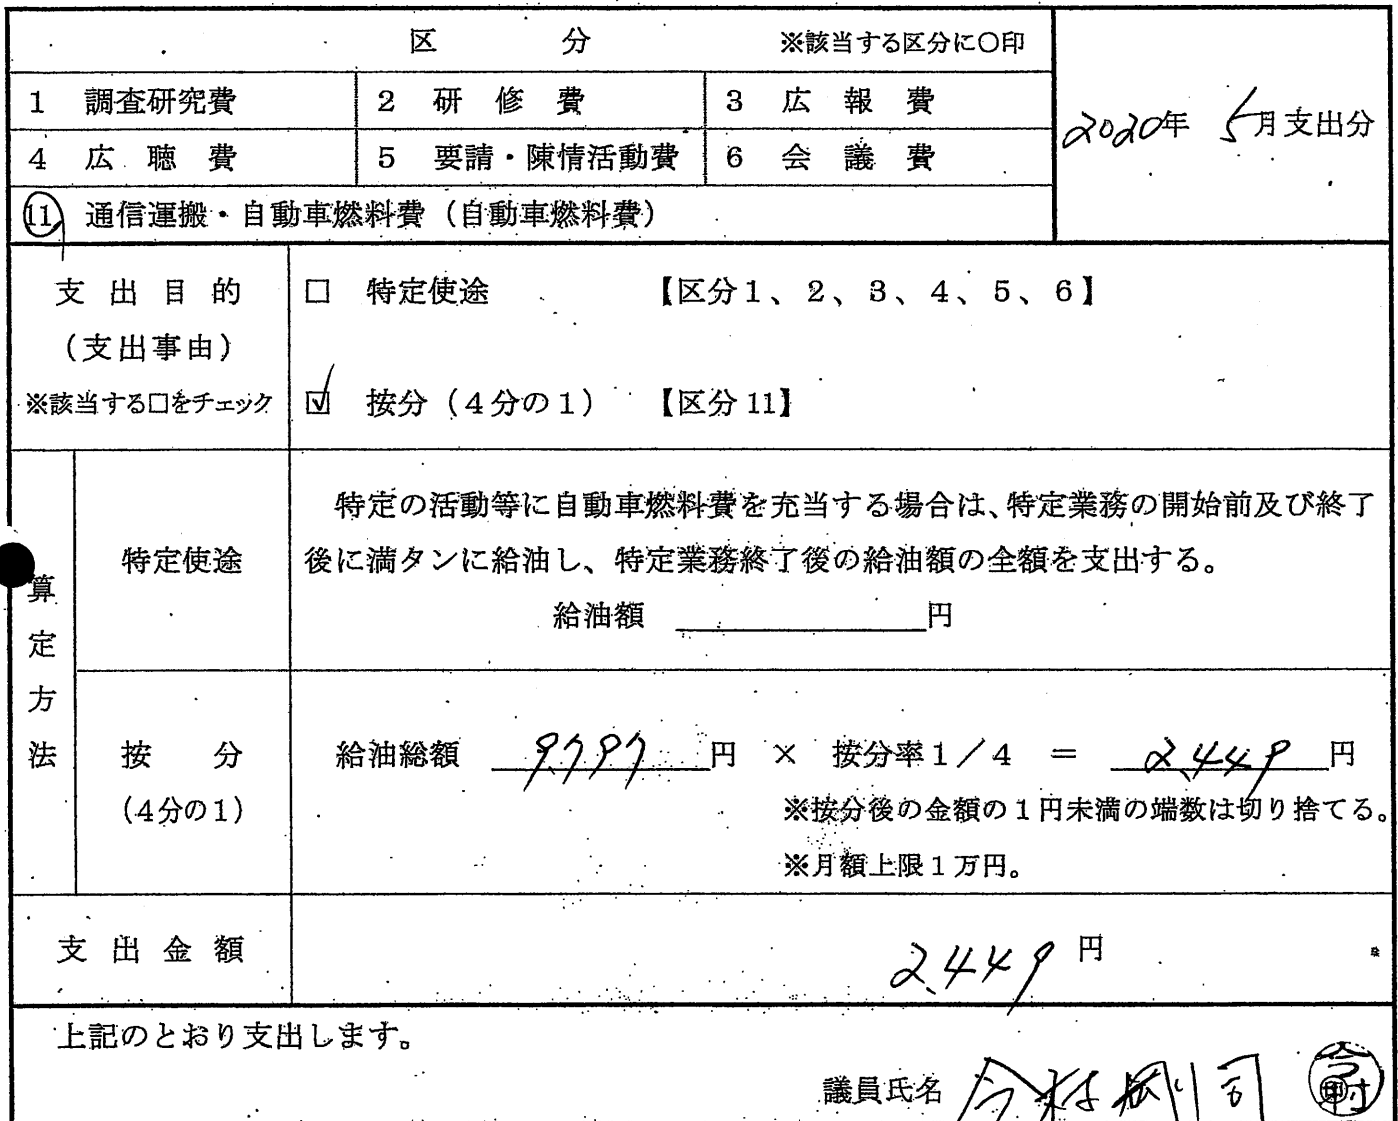 区 分 ※該当する区分に〇印
2020年 5月支出分
1 調査研究費 2 研修費 3 広報費
4 広聴費 5 要請・陳情活動費 6 会議費
11 通信運搬・自動車燃料費（自動車燃料費）
支出目的
（支出事由）
※該当する□をチェック
□ 特定使途 【区分1、2、3、4、5、6】
☑ 按分（4分の1） 【区分11】
算定方法
特定使途
特定の活動等に自動車燃料費を充当する場合は、特定業務の開始前及び終了
後に満タンに給油し、特定業務終了後の給油額の全額を支出する。
給油額 円
按分
（4分の1）
給油総額 9,797 円 × 按分率1／4 ＝ 2,449 円
※按分後の金額の1円未満の端数は切り捨てる。
※月額上限1万円。
支出金額 2,449 円
上記のとおり支出します。
議員氏名 今村剛司
今村